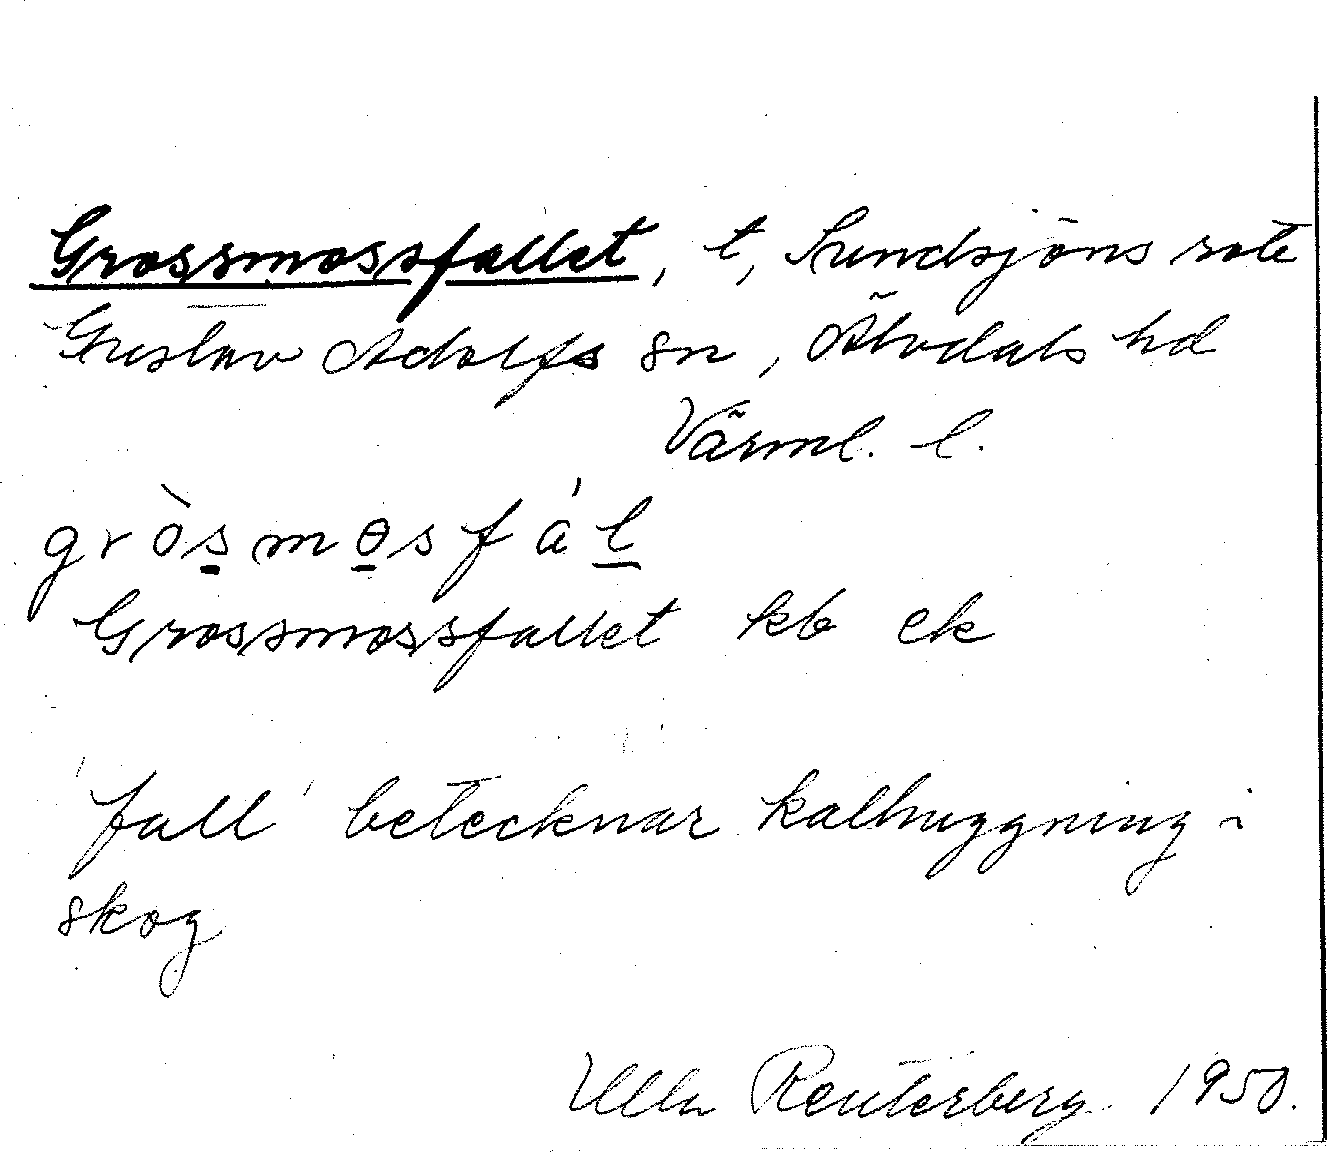 Grossmossfallet, t, Sundsjöns rote
Gustav Adolfs sn, Älvdals hd
Värml. l.
gròsmɵsfál
Grossmossfallet kb ek
'fall' betecknar kalhuggning i
skog
Ulla Reuterberg 1950.